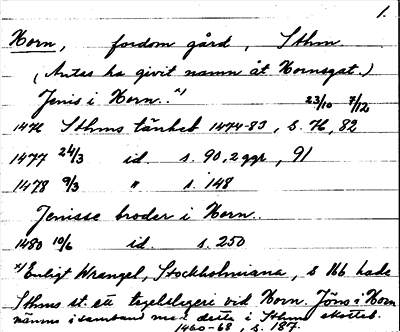 1.
Horn, fordom gård, Sthm.
(Antas ha givit namn åt Hornsgat.)
Jenis i Horn..*)
23/10 7/12
1476 Sthms tänkeb 1474-83, s. 76, 82
1477 24/3 id. s. 90, 2 ggr, 91
1478 9/3 " s. 148
Jenisse broder i Horn.
1480 10/6 id. s. 250
*) Enligt Wrangel, Stockholmiana, s 166 hade
Sthms st. ett tegelslageri vid Horn. Jöns i Horn
nämns i samband med detta i Sthms skotteb.
1460-68, s. 187.